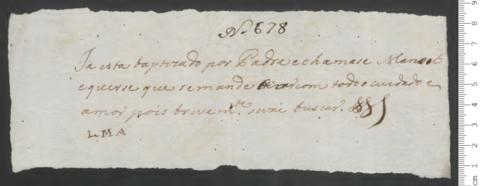 N. 678
Ja esta baptizado por Padre e chamase Manoel
e querse que se mande com todo cuidado e
amor pois breve m.te se vai buscar.
L.M.A